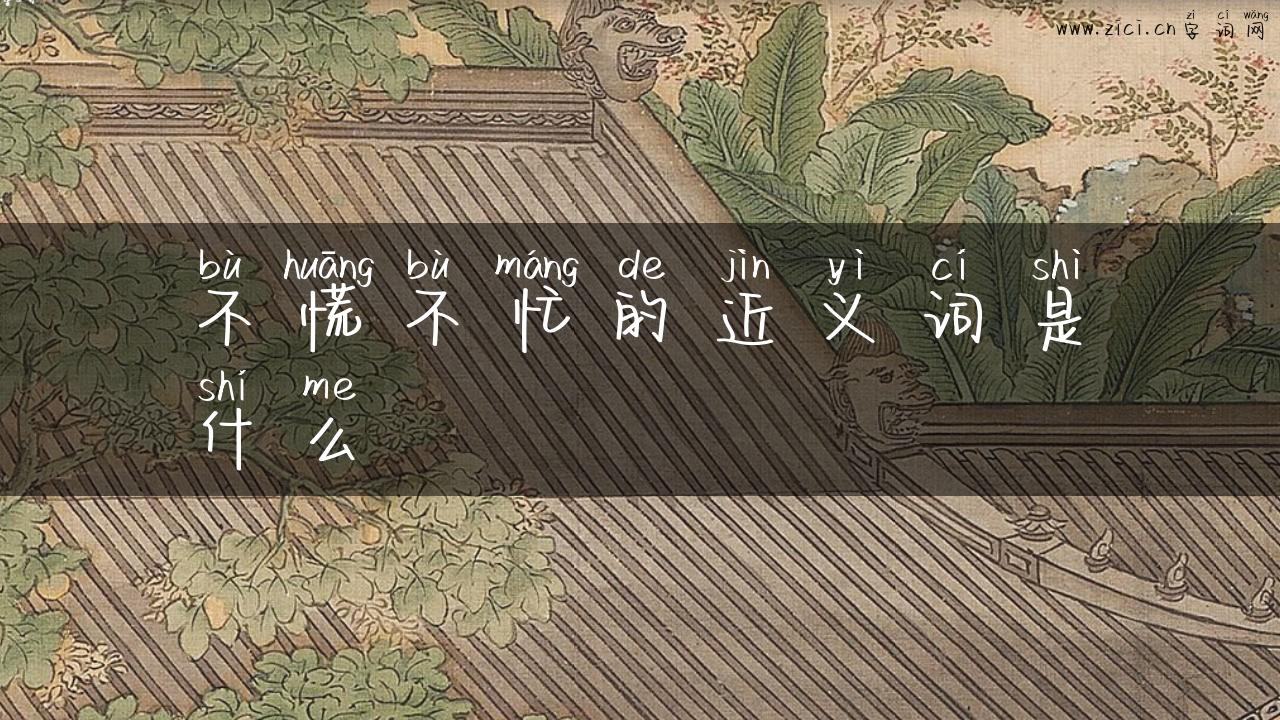 zì cí wǎng
www.zici.cn 字词网
bù huāng bù máng de jìn yì cí shì
不慌不忙的近义词是
shí me
什么